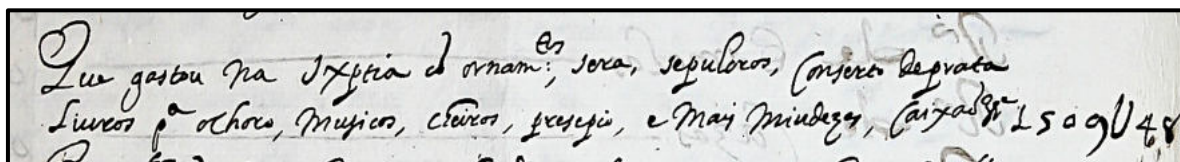 Que gastou na Sxptia cõ ornam:es, sera, sepulcros, Conserto de prata
Liuros pª o choro, Musicos, cheiros, presepio, e Mais Miudezas, Caixa 1509U48